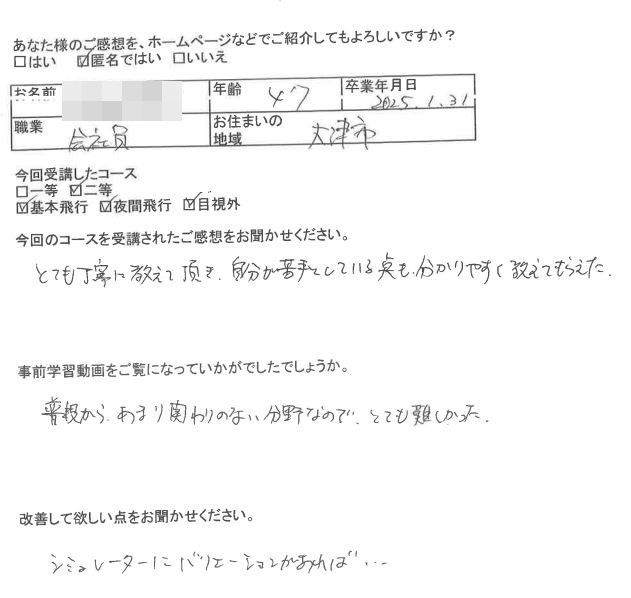 あなた様のご感想を、ホームページなどでご紹介してもよろしいですか？
□はい ☑匿名ではい □いいえ
お名前 年齢 47 卒業年月日 2025.1.31
職業 会社員 お住まいの地域 大津市
今回受講したコース
□一等 ☑二等
☑基本飛行 ☑夜間飛行 ☑目視外
今回のコースを受講されたご感想をお聞かせください。
とても丁寧に教えて頂き、自分が苦手としている点も、分かりやすく教えてもらえた。
事前学習動画をご覧になっていかがでしたでしょうか。
普段から、あまり関わりのない分野なので、とても難しかった。
改善して欲しい点をお聞かせください。
シミュレーターにバリエーションがあれば…